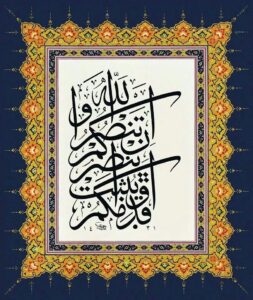 إن تنصروا الله
ينصركم
ويثبت
أقدامكم
١٤٣١